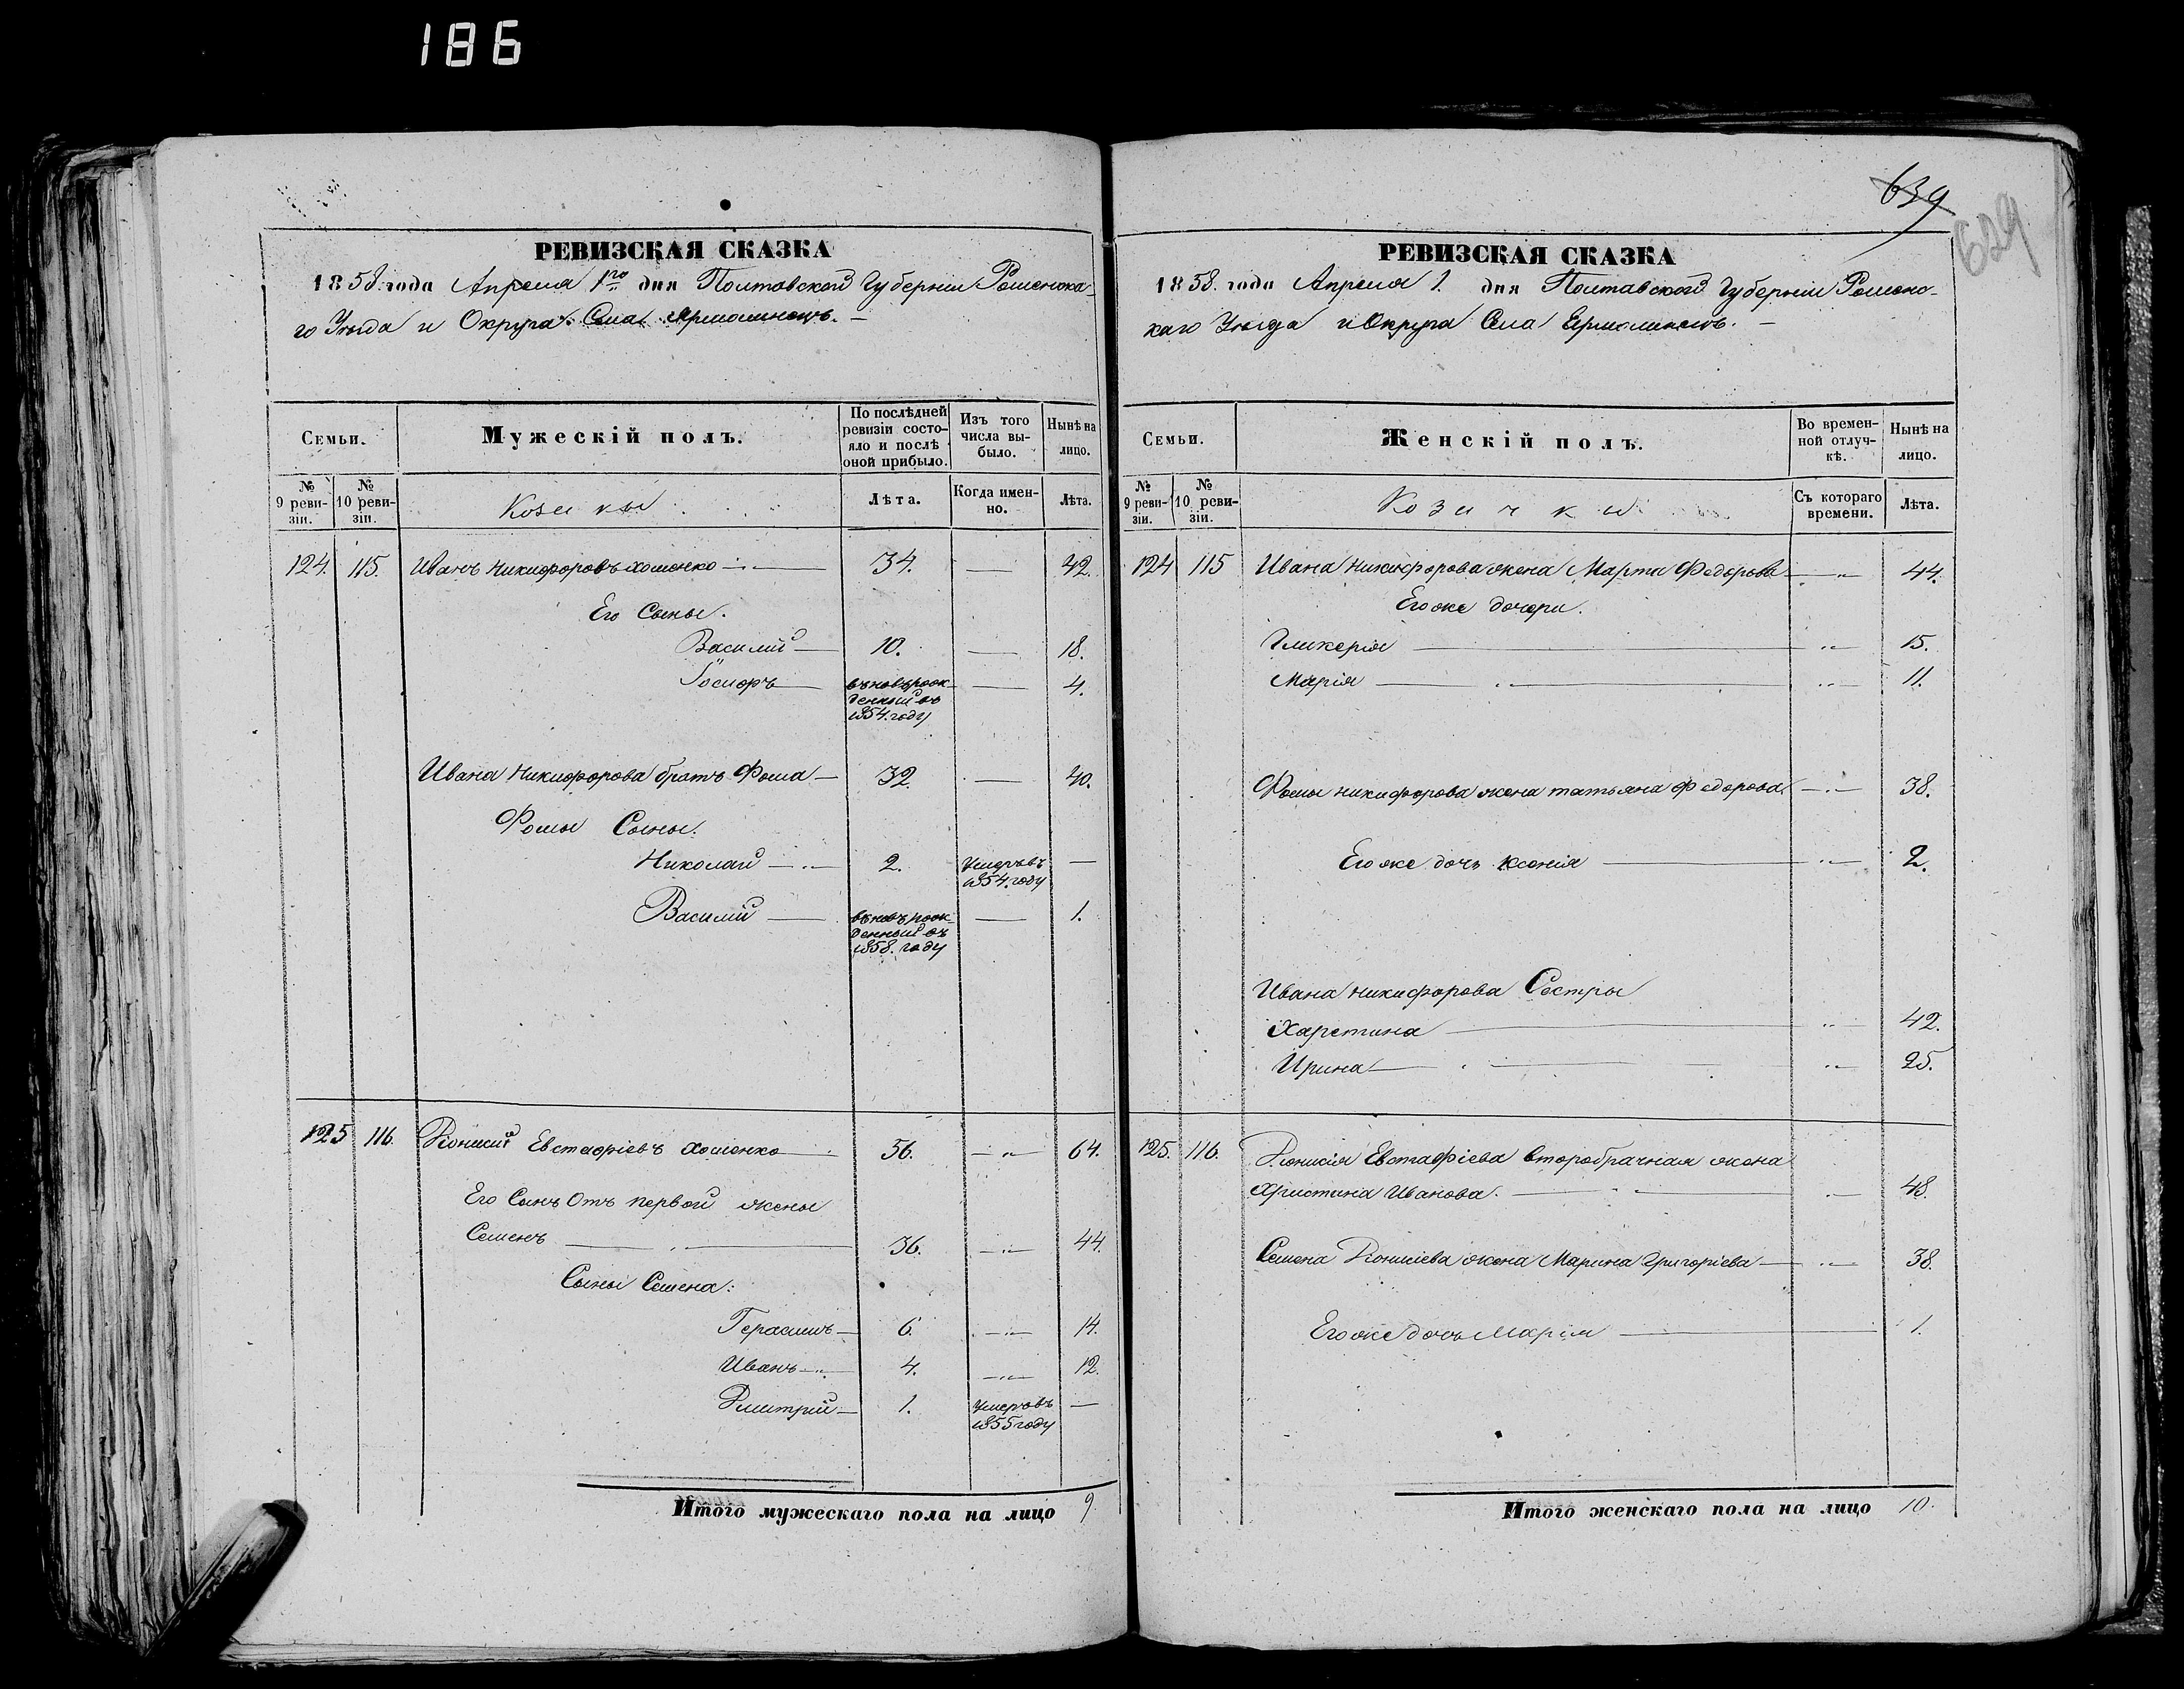 186
РЕВИЗСКАЯ СКАЗКА
1858. года Апреля 1го дня Полтавской Губернiи Роменска-
го Уезда и Округа Села Ярмолинецъ. —
Семьи. Мужескiй полъ. По послѣдней ревизiи состо-яло и послѣ оной прибыло. Изъ того числа вы-было. Нынѣ на лицо.
№ 9 реви-зiи. № 10 реви-зiи. Козаки Лѣта. Когда имен-но. Лѣта.
124. 115. Иванъ Никифоровъ Хоменко — 34. — 42.
Его Сыны.
Василiй — 10. — 18.
Iосифъ — вновьрож-денный въ 1854. году — 4.
Ивана Никифорова братъ Фома — 32. — 40.
Фомы Сыны.
Николай — 2. Умеръ въ 1854. году —
Василiй — вновьрож-денный въ 1858. году — 1.
125 116. Дiонисiй Евстафiевъ Хоменко — 56. — 64.
Его Сынъ Отъ первой жены
Семенъ — 36. — 44.
Сыны Семена:
Герасимъ — 6. — 14.
Иванъ — 4. — 12.
Дмитрiй — 1. Умеръ въ 1855 году —
Итого мужескаго пола на лицо 9
639
629
РЕВИЗСКАЯ СКАЗКА
1858. года Апреля 1. дня Полтавской Губернiи Роменс-
каго Уезда и Округа Села Ермолинецъ. —
Семьи. Женскiй полъ. Во времен-ной отлуч-кѣ. Нынѣ на лицо.
№ 9 реви-зiи. № 10 реви-зiи. Козички Съ котораго времени. Лѣта.
124 115 Ивана Никифорова жена Марта Федорова — 44.
Его же дочери.
Гликерiя — 15.
Марiя — 11.
Фомы Никифорова жена татьяна Федорова — 38.
Его же дочь Ксенiя — 2.
Ивана Никифорова Сестры
Харетина — 42.
Ирина — 25.
125. 116. Дiонисiя Евстафiева второбрачная жена
Христина Иванова. — 48.
Семена Дiонисiева жена Марина Григорiева — 38.
Его же дочь Марiя — 1.
Итого женскаго пола на лицо 10.